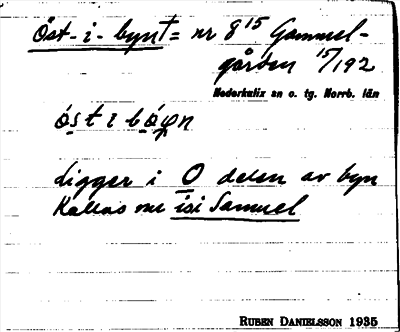 Öst-i-bynt = nr 8 15 Gammel-
gården 15/192
Nederkalix sn o. tg. Norrb. län
öst i b
Ligger i O delen av byn
Kallas nu isi Samuel
RUBEN DANIELSSON 1935